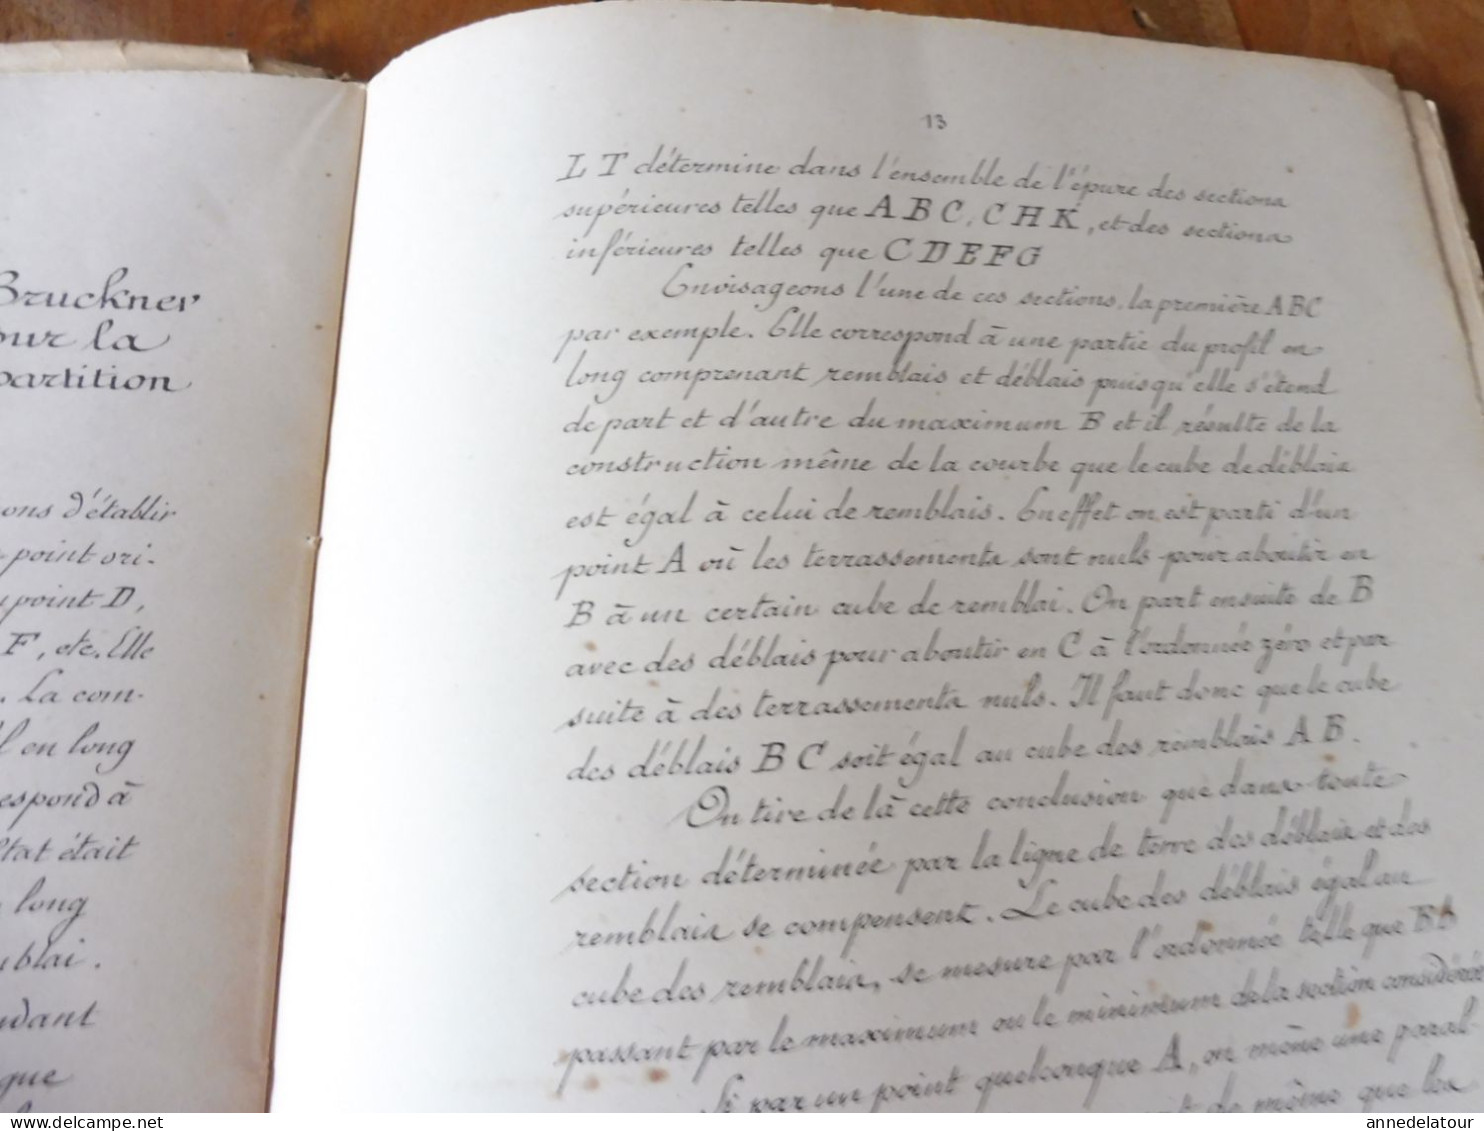 Bruckner
our la
partition
ons d'établir
point ori-
point D,
F, etc. Elle
. La com-
l en long
espond à
tat était
long
ublai.
ndant
que
13
LT détermine dans l'ensemble de l'épure des sections
supérieures telles que ABC, CHK, et des sections
inférieures telles que CDEFG
Envisageons l'une de ces sections, la première ABC
par exemple. Elle correspond à une partie du profil en
long comprenant remblais et déblais puisqu'elle s'étend
de part et d'autre du maximum B et il résulte de la
construction même de la courbe que le cube de déblais
est égal à celui de remblais. En effet on est parti d'un
point A où les terrassements sont nuls pour aboutir en
B à un certain cube de remblai. On part ensuite de B
avec des déblais pour aboutir en C à l'ordonnée zéro et par
suite à des terrassements nuls. Il faut donc que le cube
des déblais BC soit égal au cube des remblais AB.
On tire de là cette conclusion que dans toute
section déterminée par la ligne de terre des déblais et des
remblais se compensent. Le cube des déblais égal au
cube des remblais, se mesure par l'ordonnée telle que Bb
passant par le maximum ou le minimum de la section considérée
Si par un point quelconque A, on mène une paral
de même que les
annedelatour